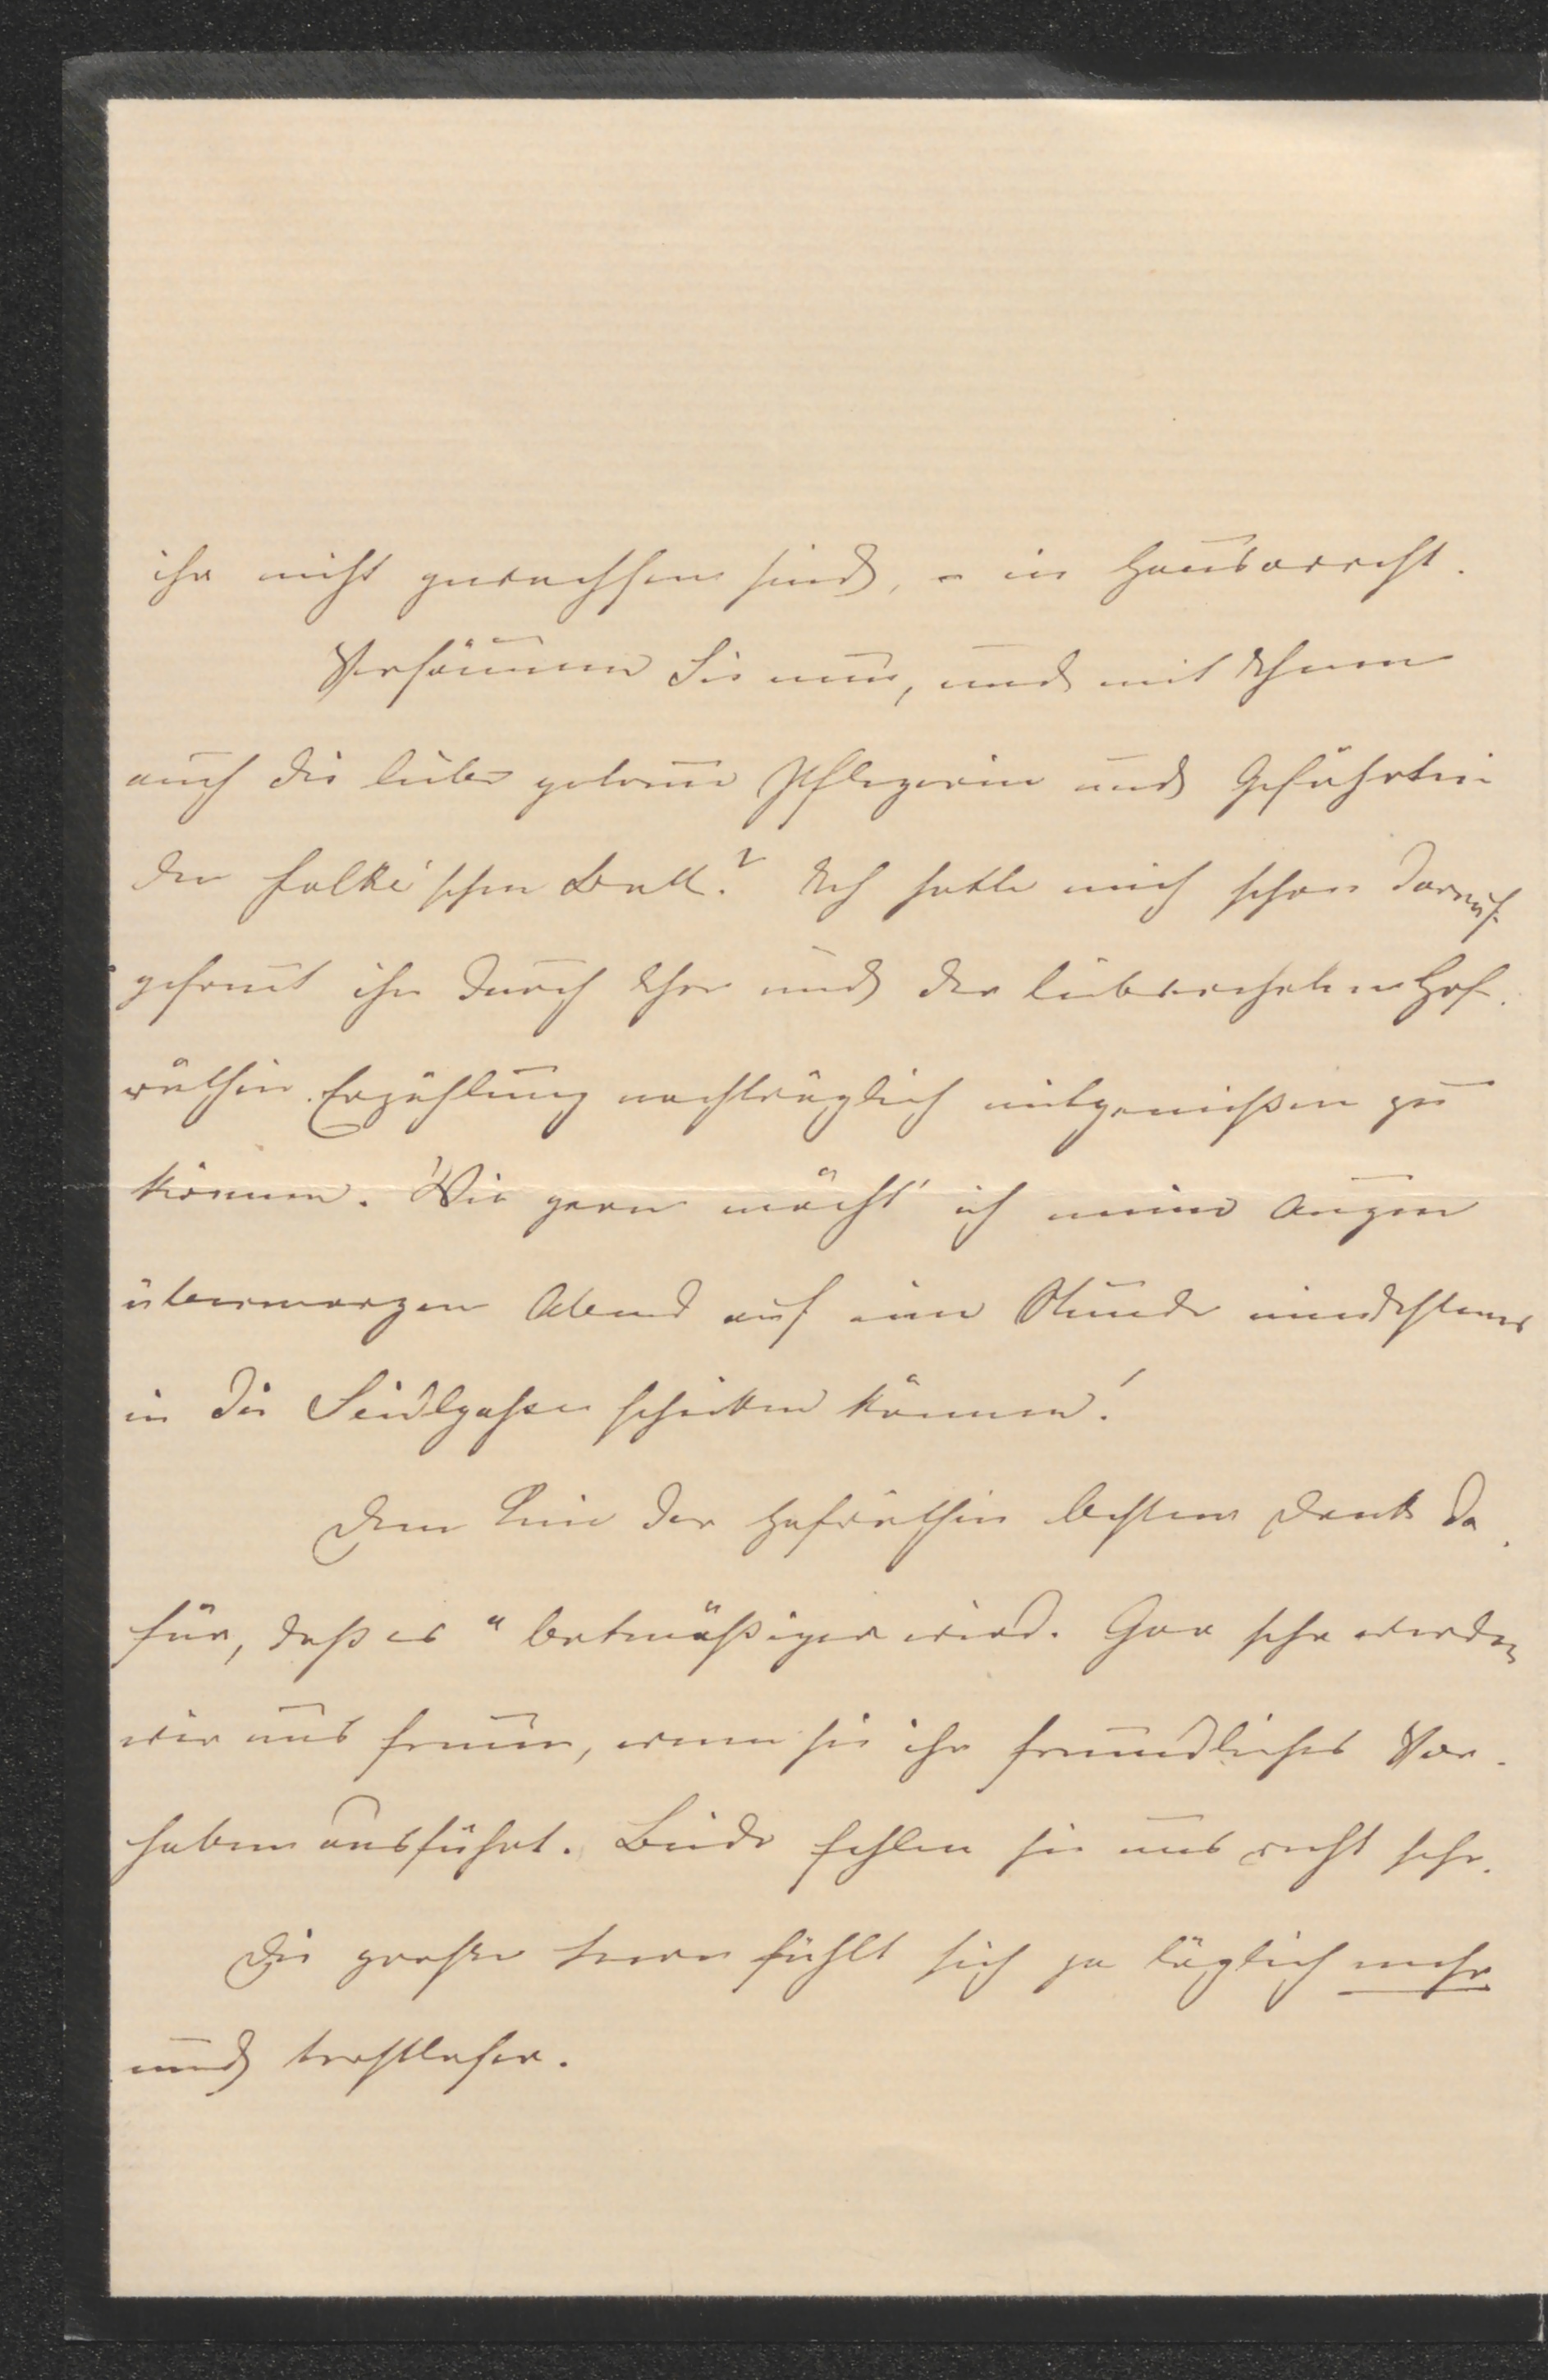 ihr nicht gewachsen sind, – in Hausarrest.
Versäumen Sie nun, und mit Ihnen
auch die liebe getreue Pflegerin und Gefährtin
den Falke'schen Ball? Ich hatte mich schon darauf
gefreut ihn durch Ihre und der liebverehrten Hof-
räthin Erzählung nachträglich mitgenießen zu
können. Wie gern möcht' ich meine Augen
übermorgen Abend auf eine Stunde mindestens
in die Seidlgasse schicken können!
Dem Knie der Hofräthin besten Dank da-
für, daß es " botmäßiger wird. Gar sehr werden
wir uns freuen, wenn sie ihr freundliches Vor-
haben ausführt. Beide fehlen sie uns recht sehr.
Die große fühlt sich ja täglich mehr
und trostloser.